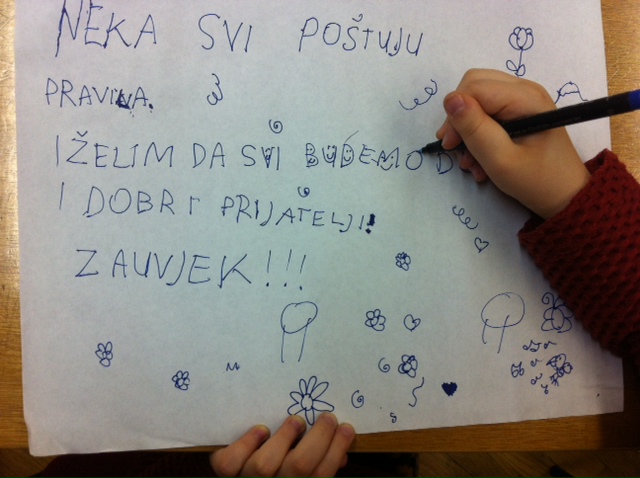 NEKA SVI POŠTUJU
PRAVILA.
I ŽELIM DA SVI BUDEMO D
I DOBRI PRIJATELJI!
ZAUVJEK!!!